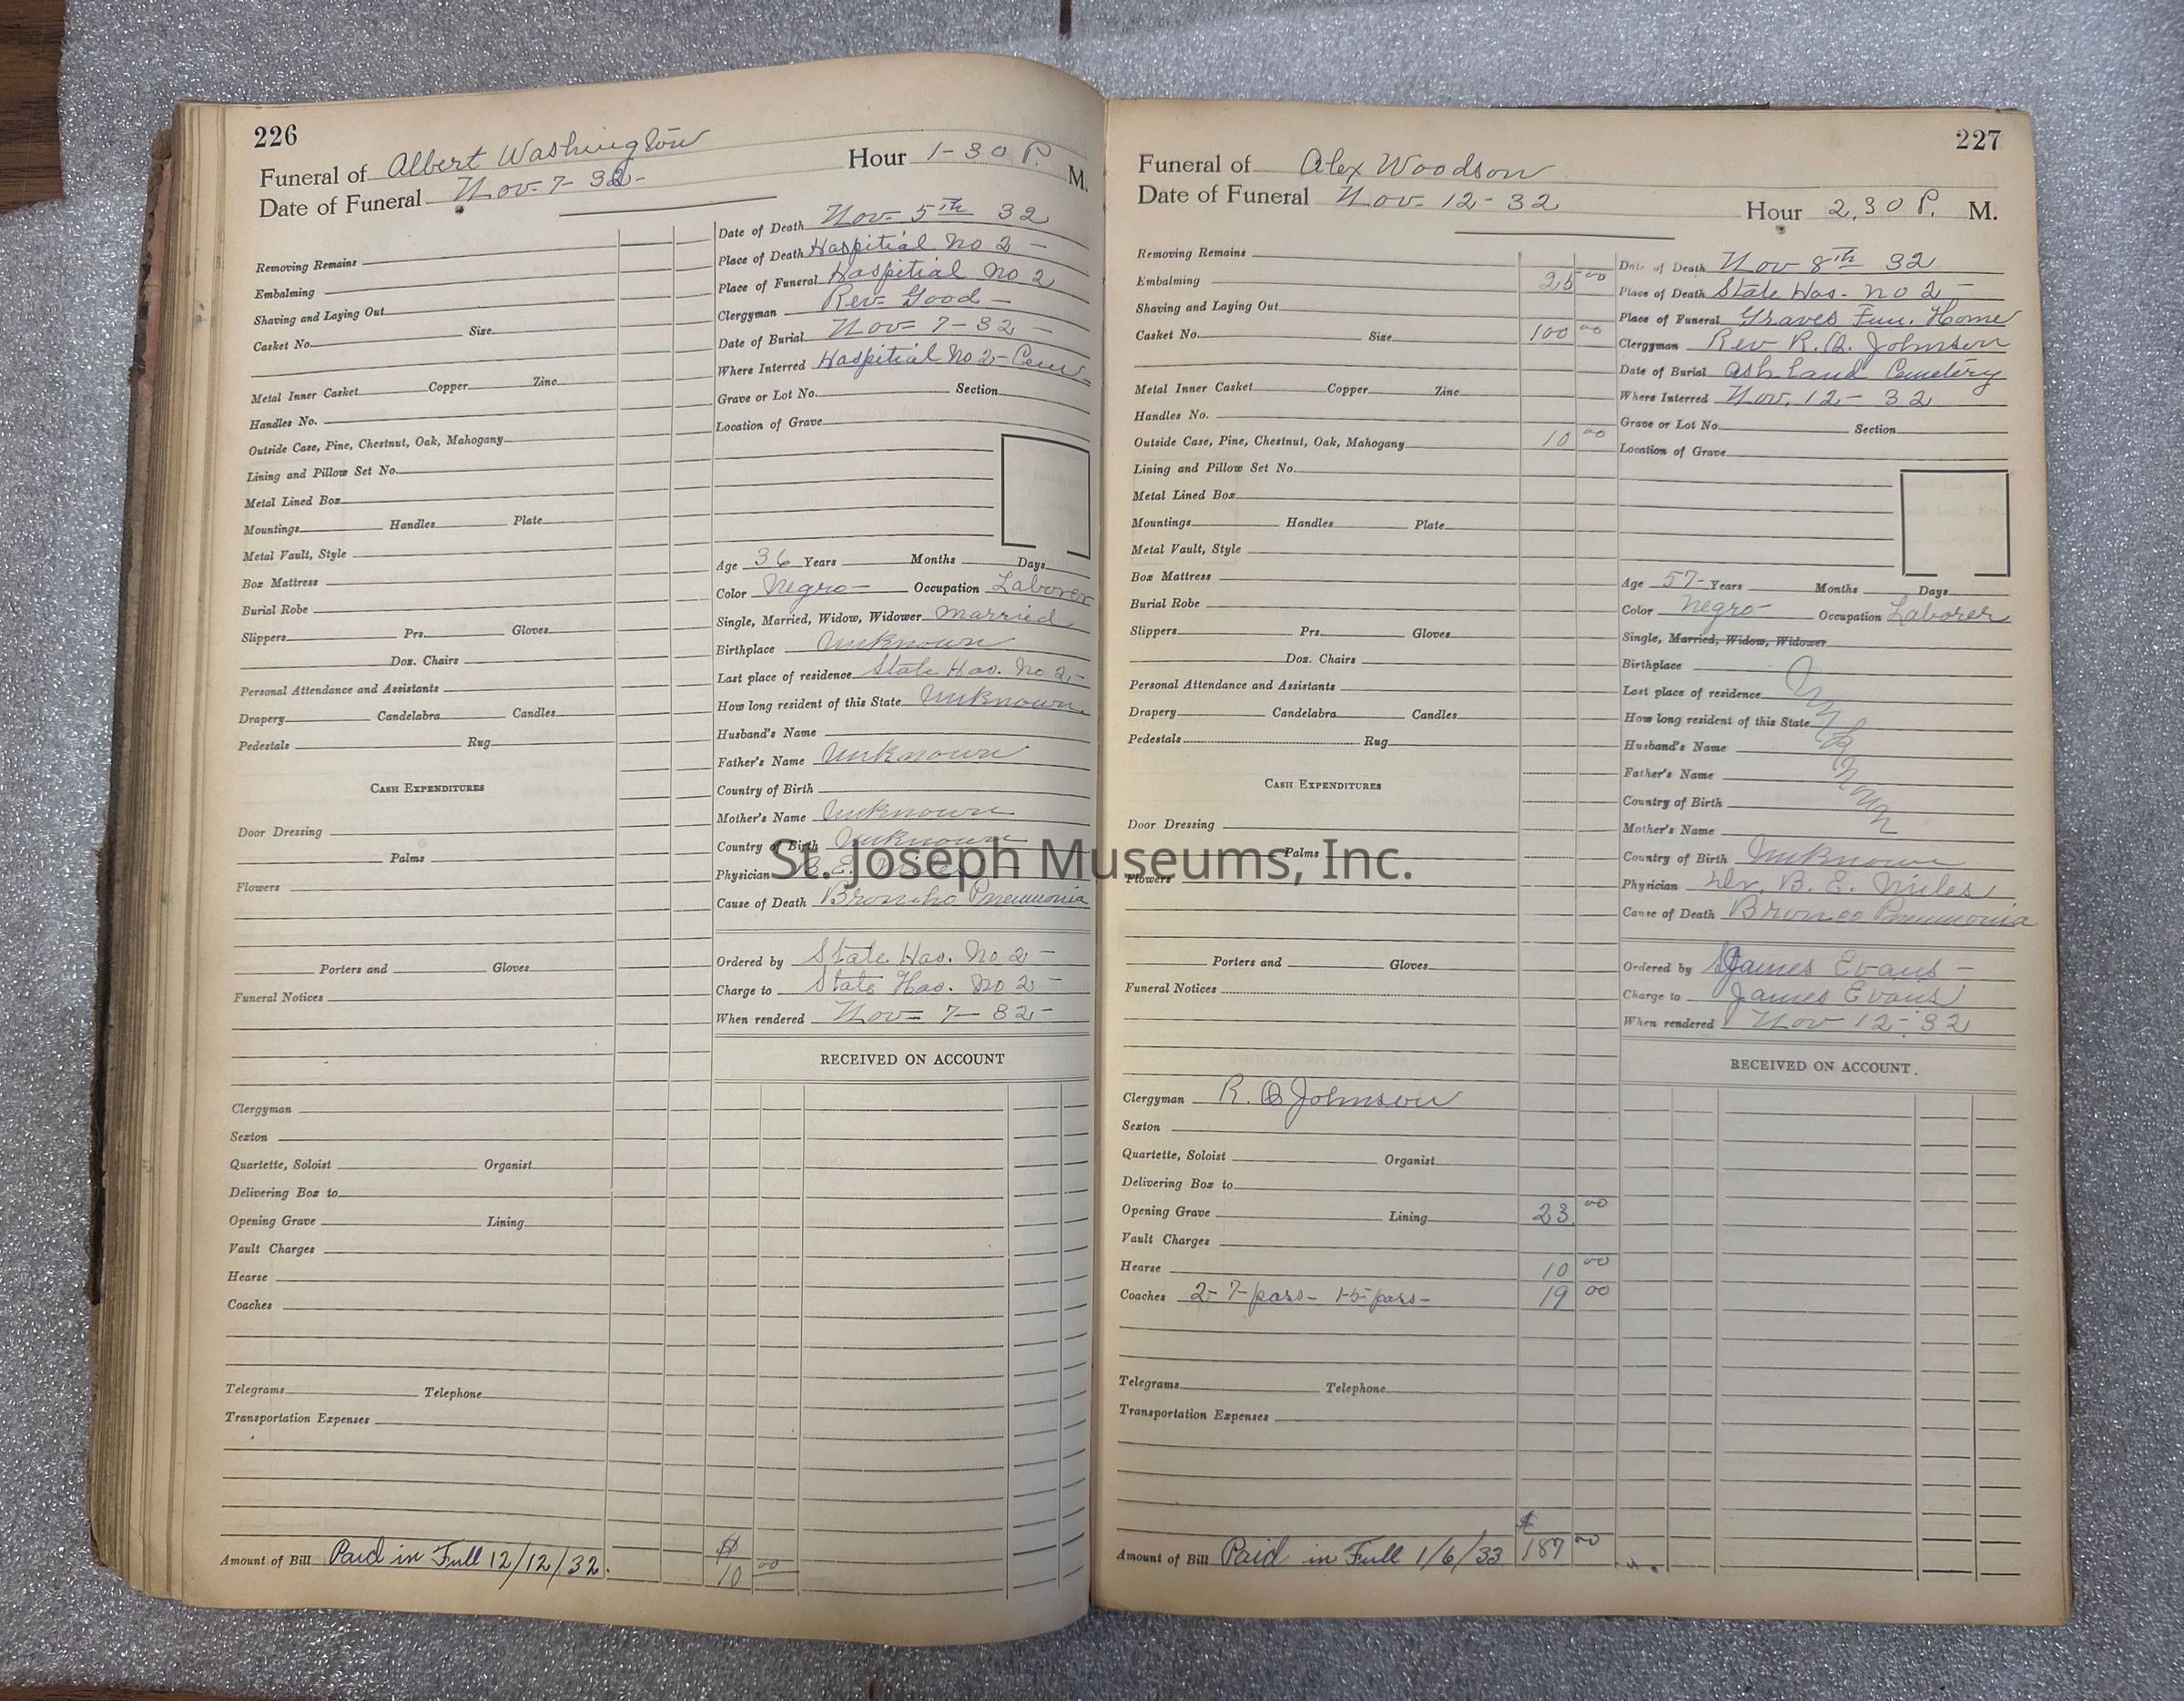 226
Funeral of Albert Washington Hour 1-30 P. M.
Date of Funeral Nov-7-32-
Removing Remains
Embalming
Shaving and Laying Out
Casket No. Size
Metal Inner Casket Copper Zinc
Handles No.
Outside Case, Pine, Chestnut, Oak, Mahogany
Lining and Pillow Set No.
Metal Lined Box
Mountings Handles Plate
Metal Vault, Style
Box Mattress
Burial Robe
Slippers Prs. Gloves
Doz. Chairs
Personal Attendance and Assistants
Drapery Candelabra Candles
Pedestals Rug
CASH EXPENDITURES
Door Dressing
Palms
Flowers
Porters and Gloves
Funeral Notices
Clergyman
Sexton
Quartette, Soloist Organist
Delivering Box to
Opening Grave Lining
Vault Charges
Hearse
Coaches
Telegrams Telephone
Transportation Expenses
Amount of Bill Paid in Full 12/12/32. $ 10 00
Date of Death Nov- 5th 32
Place of Death Haspitial No 2 -
Place of Funeral Haspitial No 2
Clergyman Rev- Good -
Date of Burial Nov- 7-32 -
Where Interred Haspitial No 2- Cem-
Grave or Lot No. Section
Location of Grave
Age 36 Years Months Days
Color Negro- Occupation Laborer
Single, Married, Widow, Widower married
Birthplace Unknown
Last place of residence State Hos. No 2-
How long resident of this State Unknown
Husband's Name
Father's Name Unknown
Country of Birth
Mother's Name Unknown
Country of Birth Unknown
Physician B. E. Miles
Cause of Death Broncho Pneumonia
Ordered by State Hos. No 2-
Charge to State Hos. No 2-
When rendered Nov- 7-32-
RECEIVED ON ACCOUNT
227
Funeral of Alex Woodson
Date of Funeral Nov- 12-32 Hour 2,30 P. M.
Removing Remains
Embalming 25 00
Shaving and Laying Out
Casket No. Size 100 00
Metal Inner Casket Copper Zinc
Handles No.
Outside Case, Pine, Chestnut, Oak, Mahogany 10 00
Lining and Pillow Set No.
Metal Lined Box
Mountings Handles Plate
Metal Vault, Style
Box Mattress
Burial Robe
Slippers Prs. Gloves
Doz. Chairs
Personal Attendance and Assistants
Drapery Candelabra Candles
Pedestals Rug
CASH EXPENDITURES
Door Dressing
Palms
Flowers
Porters and Gloves
Funeral Notices
Clergyman R. Q Johnson
Sexton
Quartette, Soloist Organist
Delivering Box to
Opening Grave Lining 23 00
Vault Charges
Hearse 10 00
Coaches 2- 7-pass- 1-5-pass- 19 00
Telegrams Telephone
Transportation Expenses
Amount of Bill Paid in Full 1/6/33 $ 187 00
Date of Death Nov 8th 32
Place of Death State Hos- No 2-
Place of Funeral Graves Fun. Home
Clergyman Rev R. Q. Johnson
Date of Burial Ashland Cemetery
Where Interred Nov. 12- 32
Grave or Lot No. Section
Location of Grave
Age 57- Years Months Days
Color Negro- Occupation Laborer
Single, Married, Widow, Widower
Birthplace
Last place of residence
How long resident of this State
Husband's Name
Father's Name
Country of Birth
Mother's Name
Unknown
Country of Birth Unknown
Physician Dr. B. E. Miles
Cause of Death Bronco Pneumonia
Ordered by James Evans-
Charge to James Evans
When rendered Nov 12-32
RECEIVED ON ACCOUNT.
St. Joseph Museums, Inc.